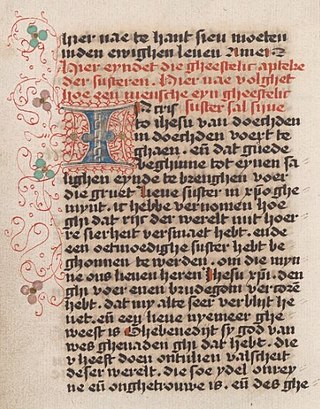 hier nae te hant sien moeten
inden ewighen leuen Amen
Hier eyndet die gheestelic apteke
der susteren. Hier nae volghet
hoe een mensche eyn gheestelit
suster sal sijne
to ihesu van doechden
in doechden voert te
ghaen. eñ dat guede
beghinne tot eynen sa
lighen eynde te brenghen voer
die gruet lieue suster in xpo ghe
mynt. ic hebbe vernomen hoe
ghi dat rijc der werelt mit hoer
re sierheit versmaet hebt. ende
een oetmoedighe suster hebt be
ghonnen te werden. om die myn
ne ons lieuen heren ihesu xpi. den
ghi voer enen brudegom vercorē
hebt. dat my alte seer verblijt he
uet. eñ v lieue nyemeer ghe
weest is Ghebenedijt sy god van
wes ghenaden ghi dat hebt. die
v heeft doen ontulien valscheit
deser werelt. die soe ydel onrey
ne eñ onghetrouwe is. eñ des ghe